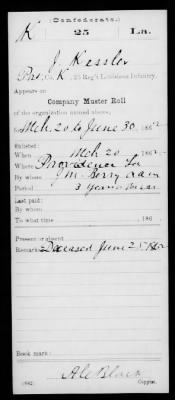 (Confederate.)
K 25 La.
J Kessler
Pvt, Co. K, 25 Reg't Louisiana Infantry.
Appears on
Company Muster Roll
of the organization named above,
for Mch. 20 to June 30, 1862
Enlisted:
When Mch 20 1862.
Where Providence La
By whom J. W. Berry
Period 3 years or war
Last paid:
By whom
To what time 186 .
Present or absent
Remarks: Deceased June 25 1862
Book mark:
(642) Copyist.